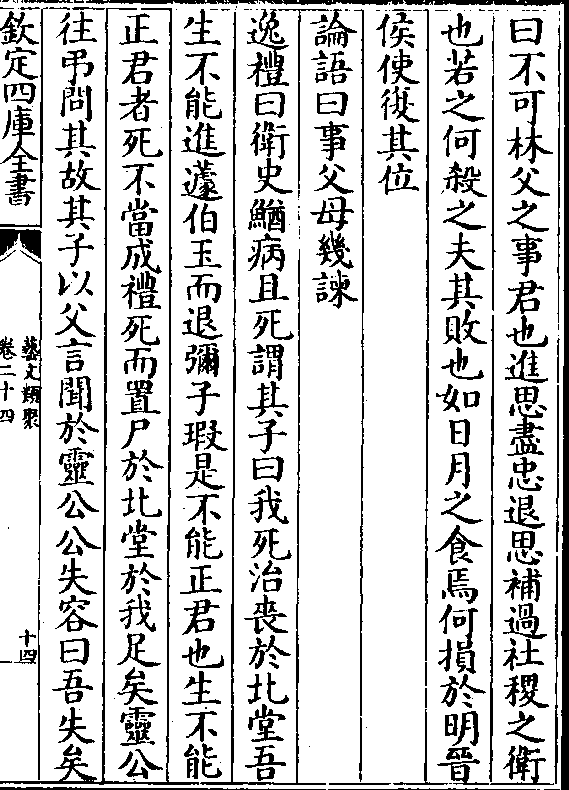 曰不可林父之事君也進思盡忠退思補過社稷之衛
也若之何殺之夫其敗也如日月之食焉何損於明晉
侯使復其位
論語曰事父母幾諫
逸禮曰衛史鰌病且死謂其子曰我死治喪於北堂吾
生不能進蘧伯玉而退彌子瑕是不能正君也生不能
正君者死不當成禮死而置尸於北堂於我足矣靈公
往弔問其故其子以父言聞於靈公公失容曰吾失矣
欽定四庫全書
藝文類聚
卷二十四
十四